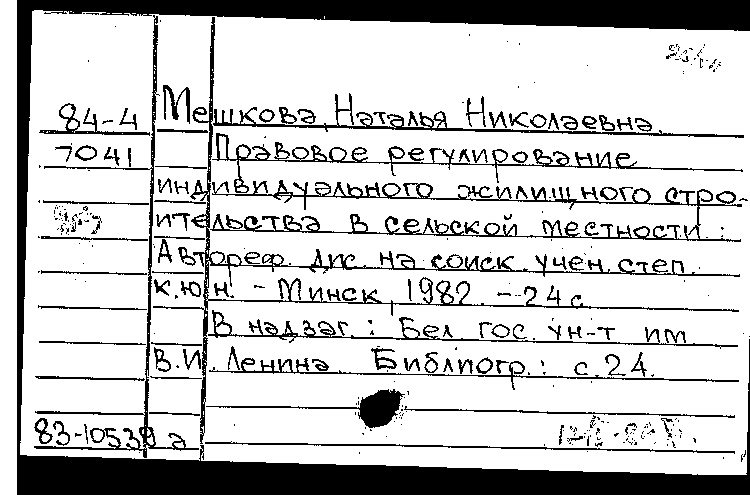 84-4 Мешкова, Наталья Николаевна.
7041 Правовое регулирование
индивидуального жилищного стро-
ительства в сельской местности :
Автореф. дис. на соиск. учен. степ.
к.ю.н. - Минск, 1982. - 24 с.
В надзаг.: Бел. гос. ун-т им.
В.И. Ленина. Библиогр.: с. 24.
83-10539 а